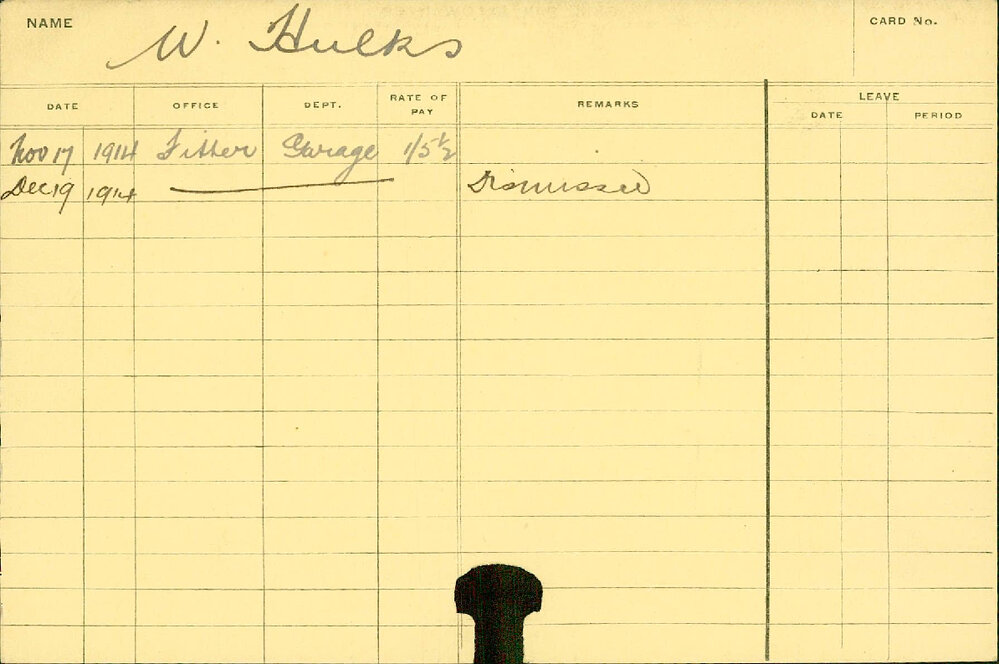 NAME W. Hulks CARD No.
DATE OFFICE DEPT. RATE OF PAY REMARKS LEAVE
DATE PERIOD
Nov 17 1914 Fitter Garage 1/5½
Dec 19 1914 Dismissed